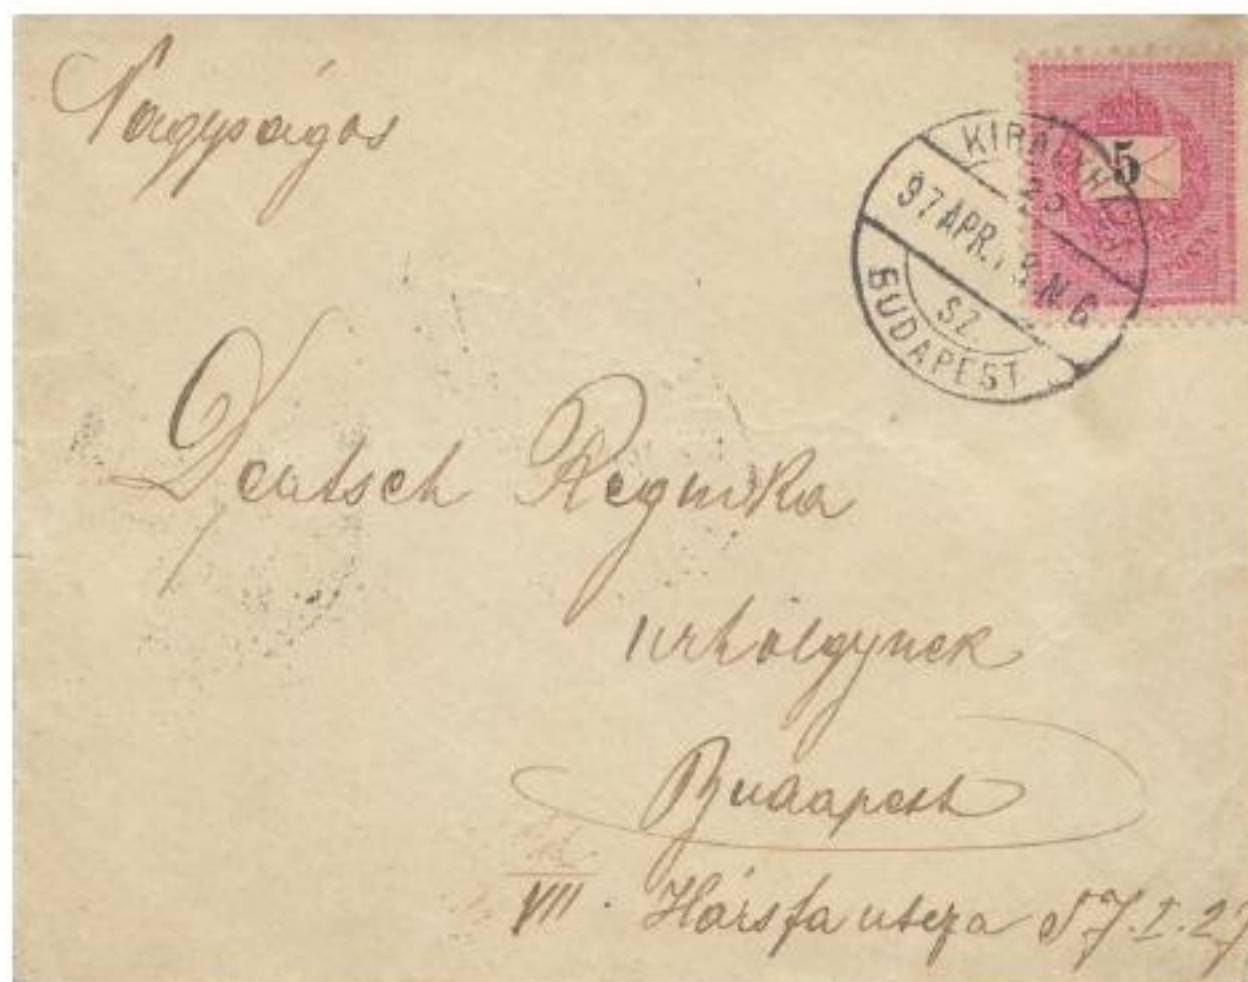 Nagyságos
5
POSTA
97 APR.
N. 6
SZ.
BUDAPEST
Deutsch Reginka
urhölgynek
Budapest
VII. Hársfa utcza 57. I. 27